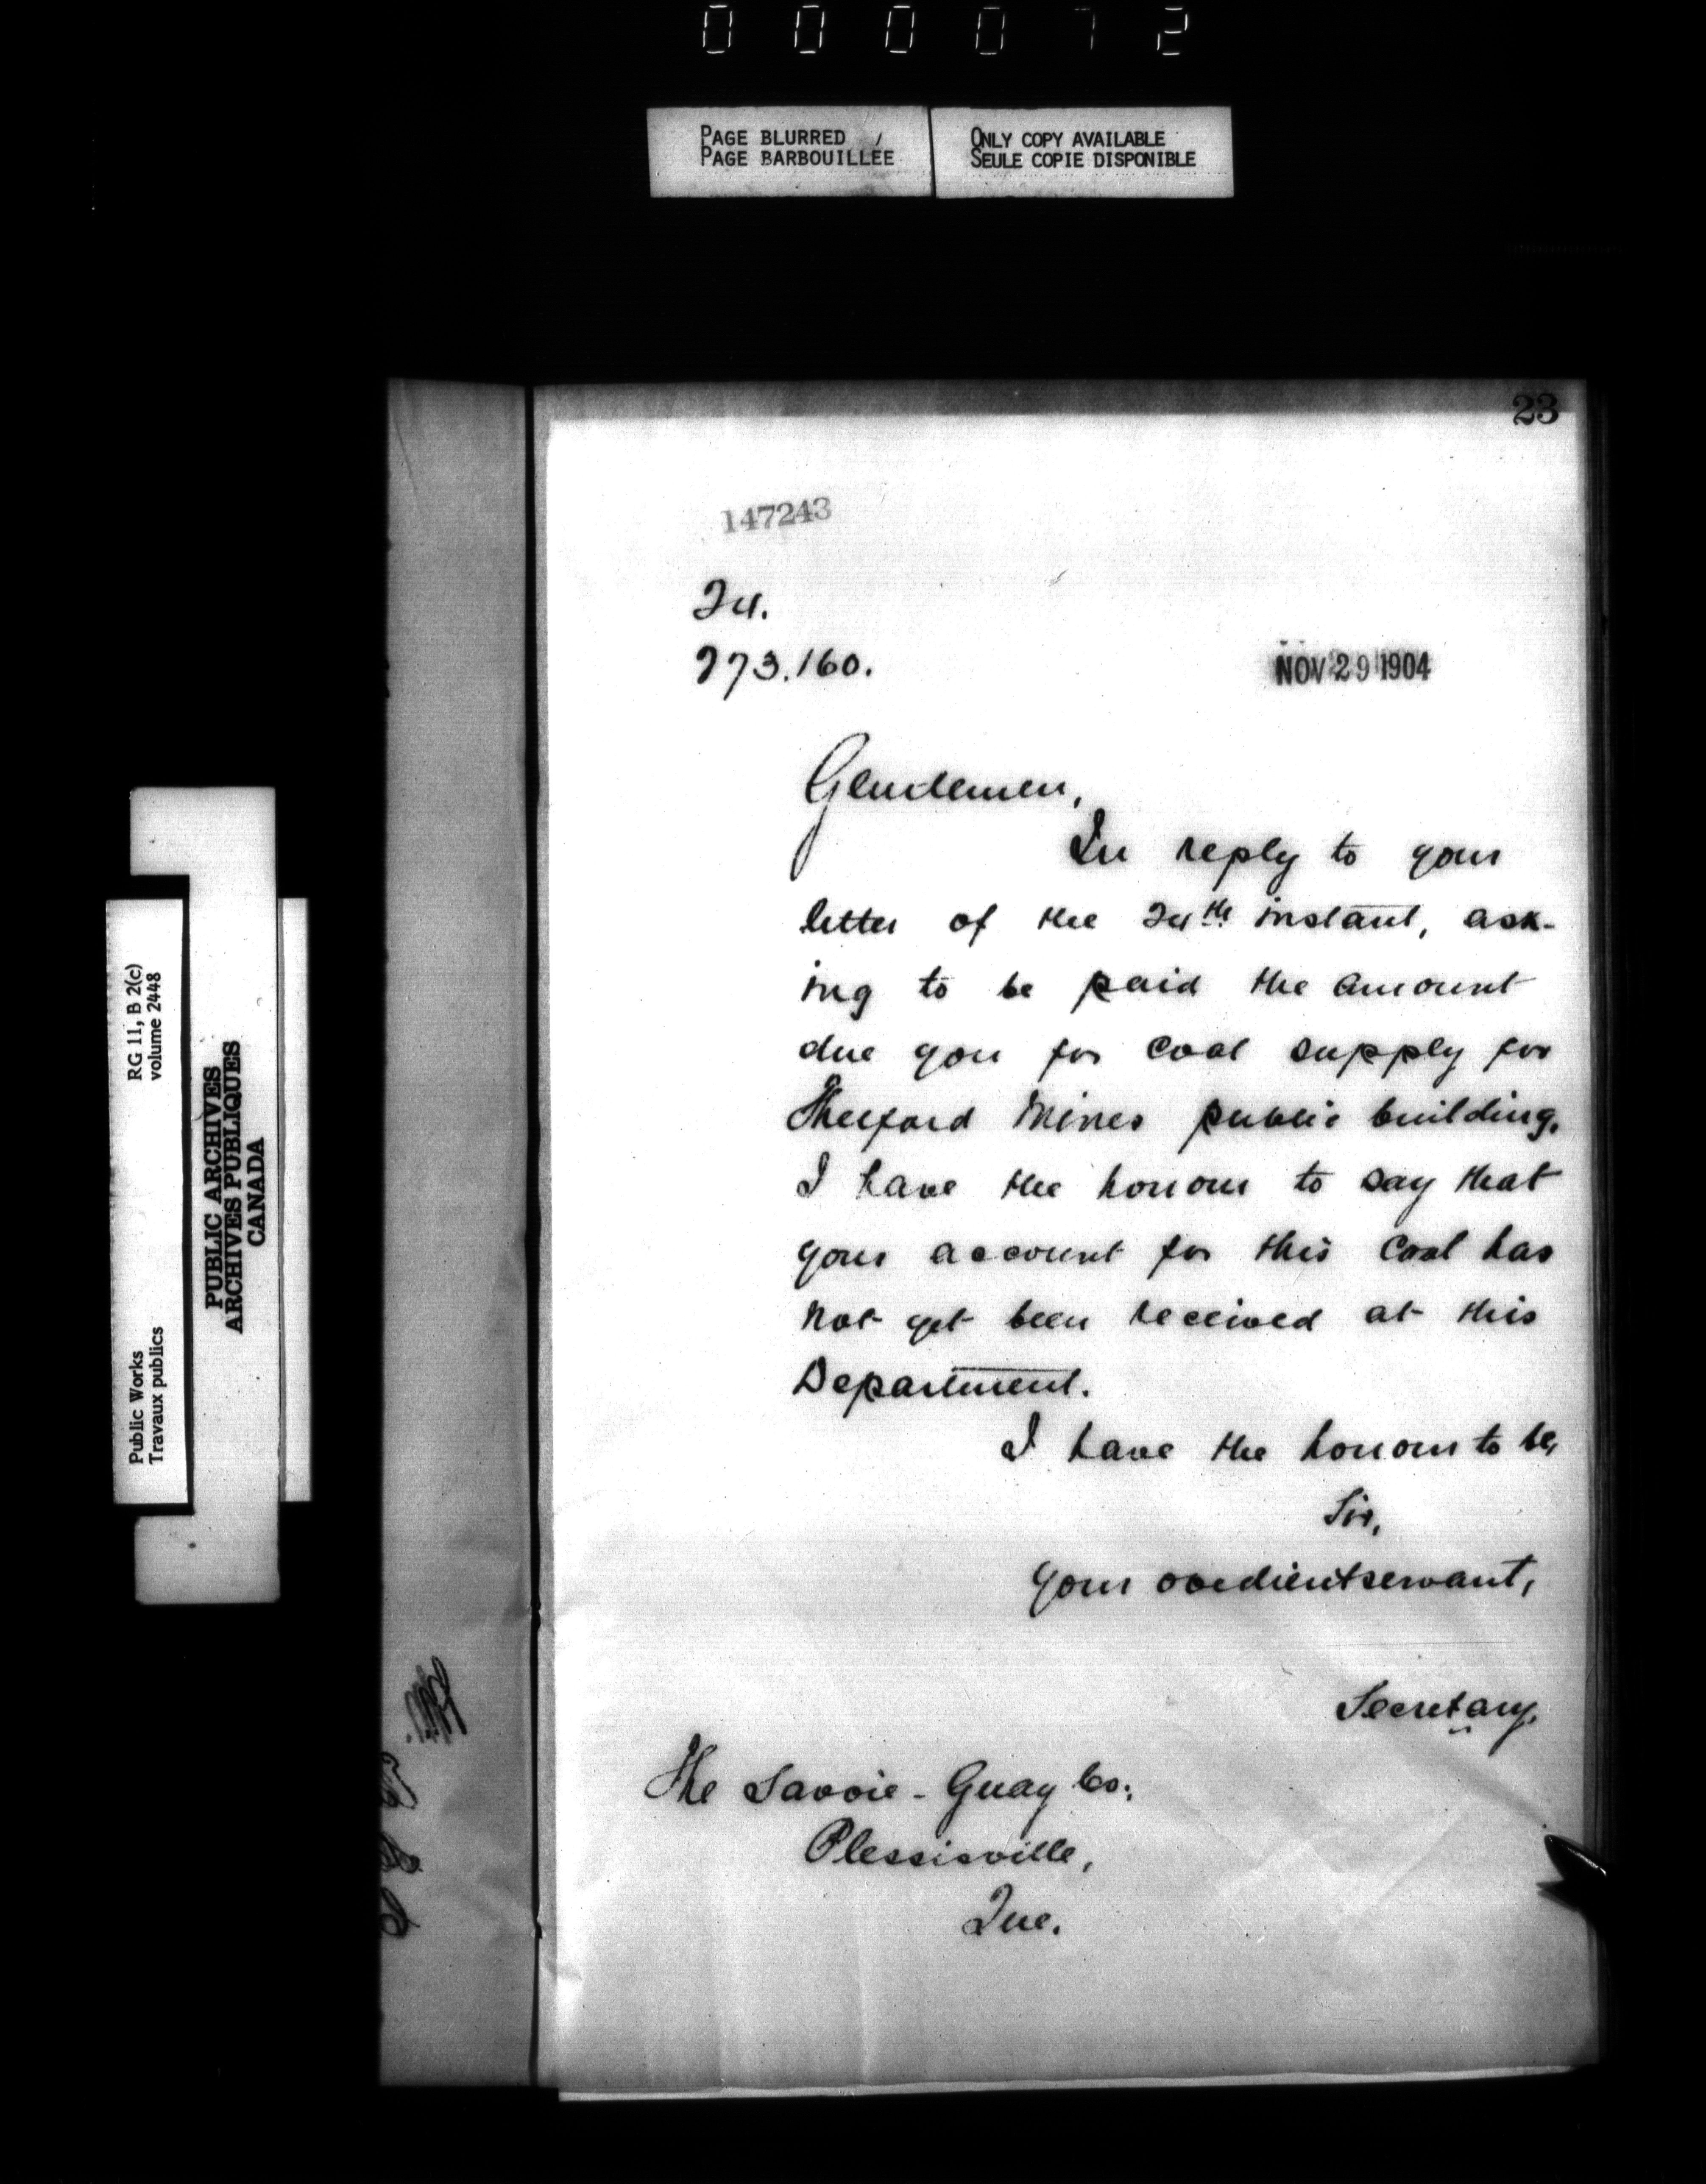 000072
PAGE BLURRED
PAGE BARBOUILLÉE
ONLY COPY AVAILABLE
SEULE COPIE DISPONIBLE
RG 11, B 2(c)
volume 2448
PUBLIC ARCHIVES
ARCHIVES PUBLIQUES
CANADA
Public Works
Travaux publics
23
147243
24.
273.160.
NOV 29 1904
Gentlemen,
In reply to your
letter of the 24th instant, ask-
ing to be paid the amount
due you for coal supply for
Thetford Mines public building,
I have the honour to say that
your account for this coal has
not yet been received at this
Department.
I have the honour to be,
Sir,
your obedient servant,
Secretary.
The Savoie-Guay Co.,
Plessisville,
Que.